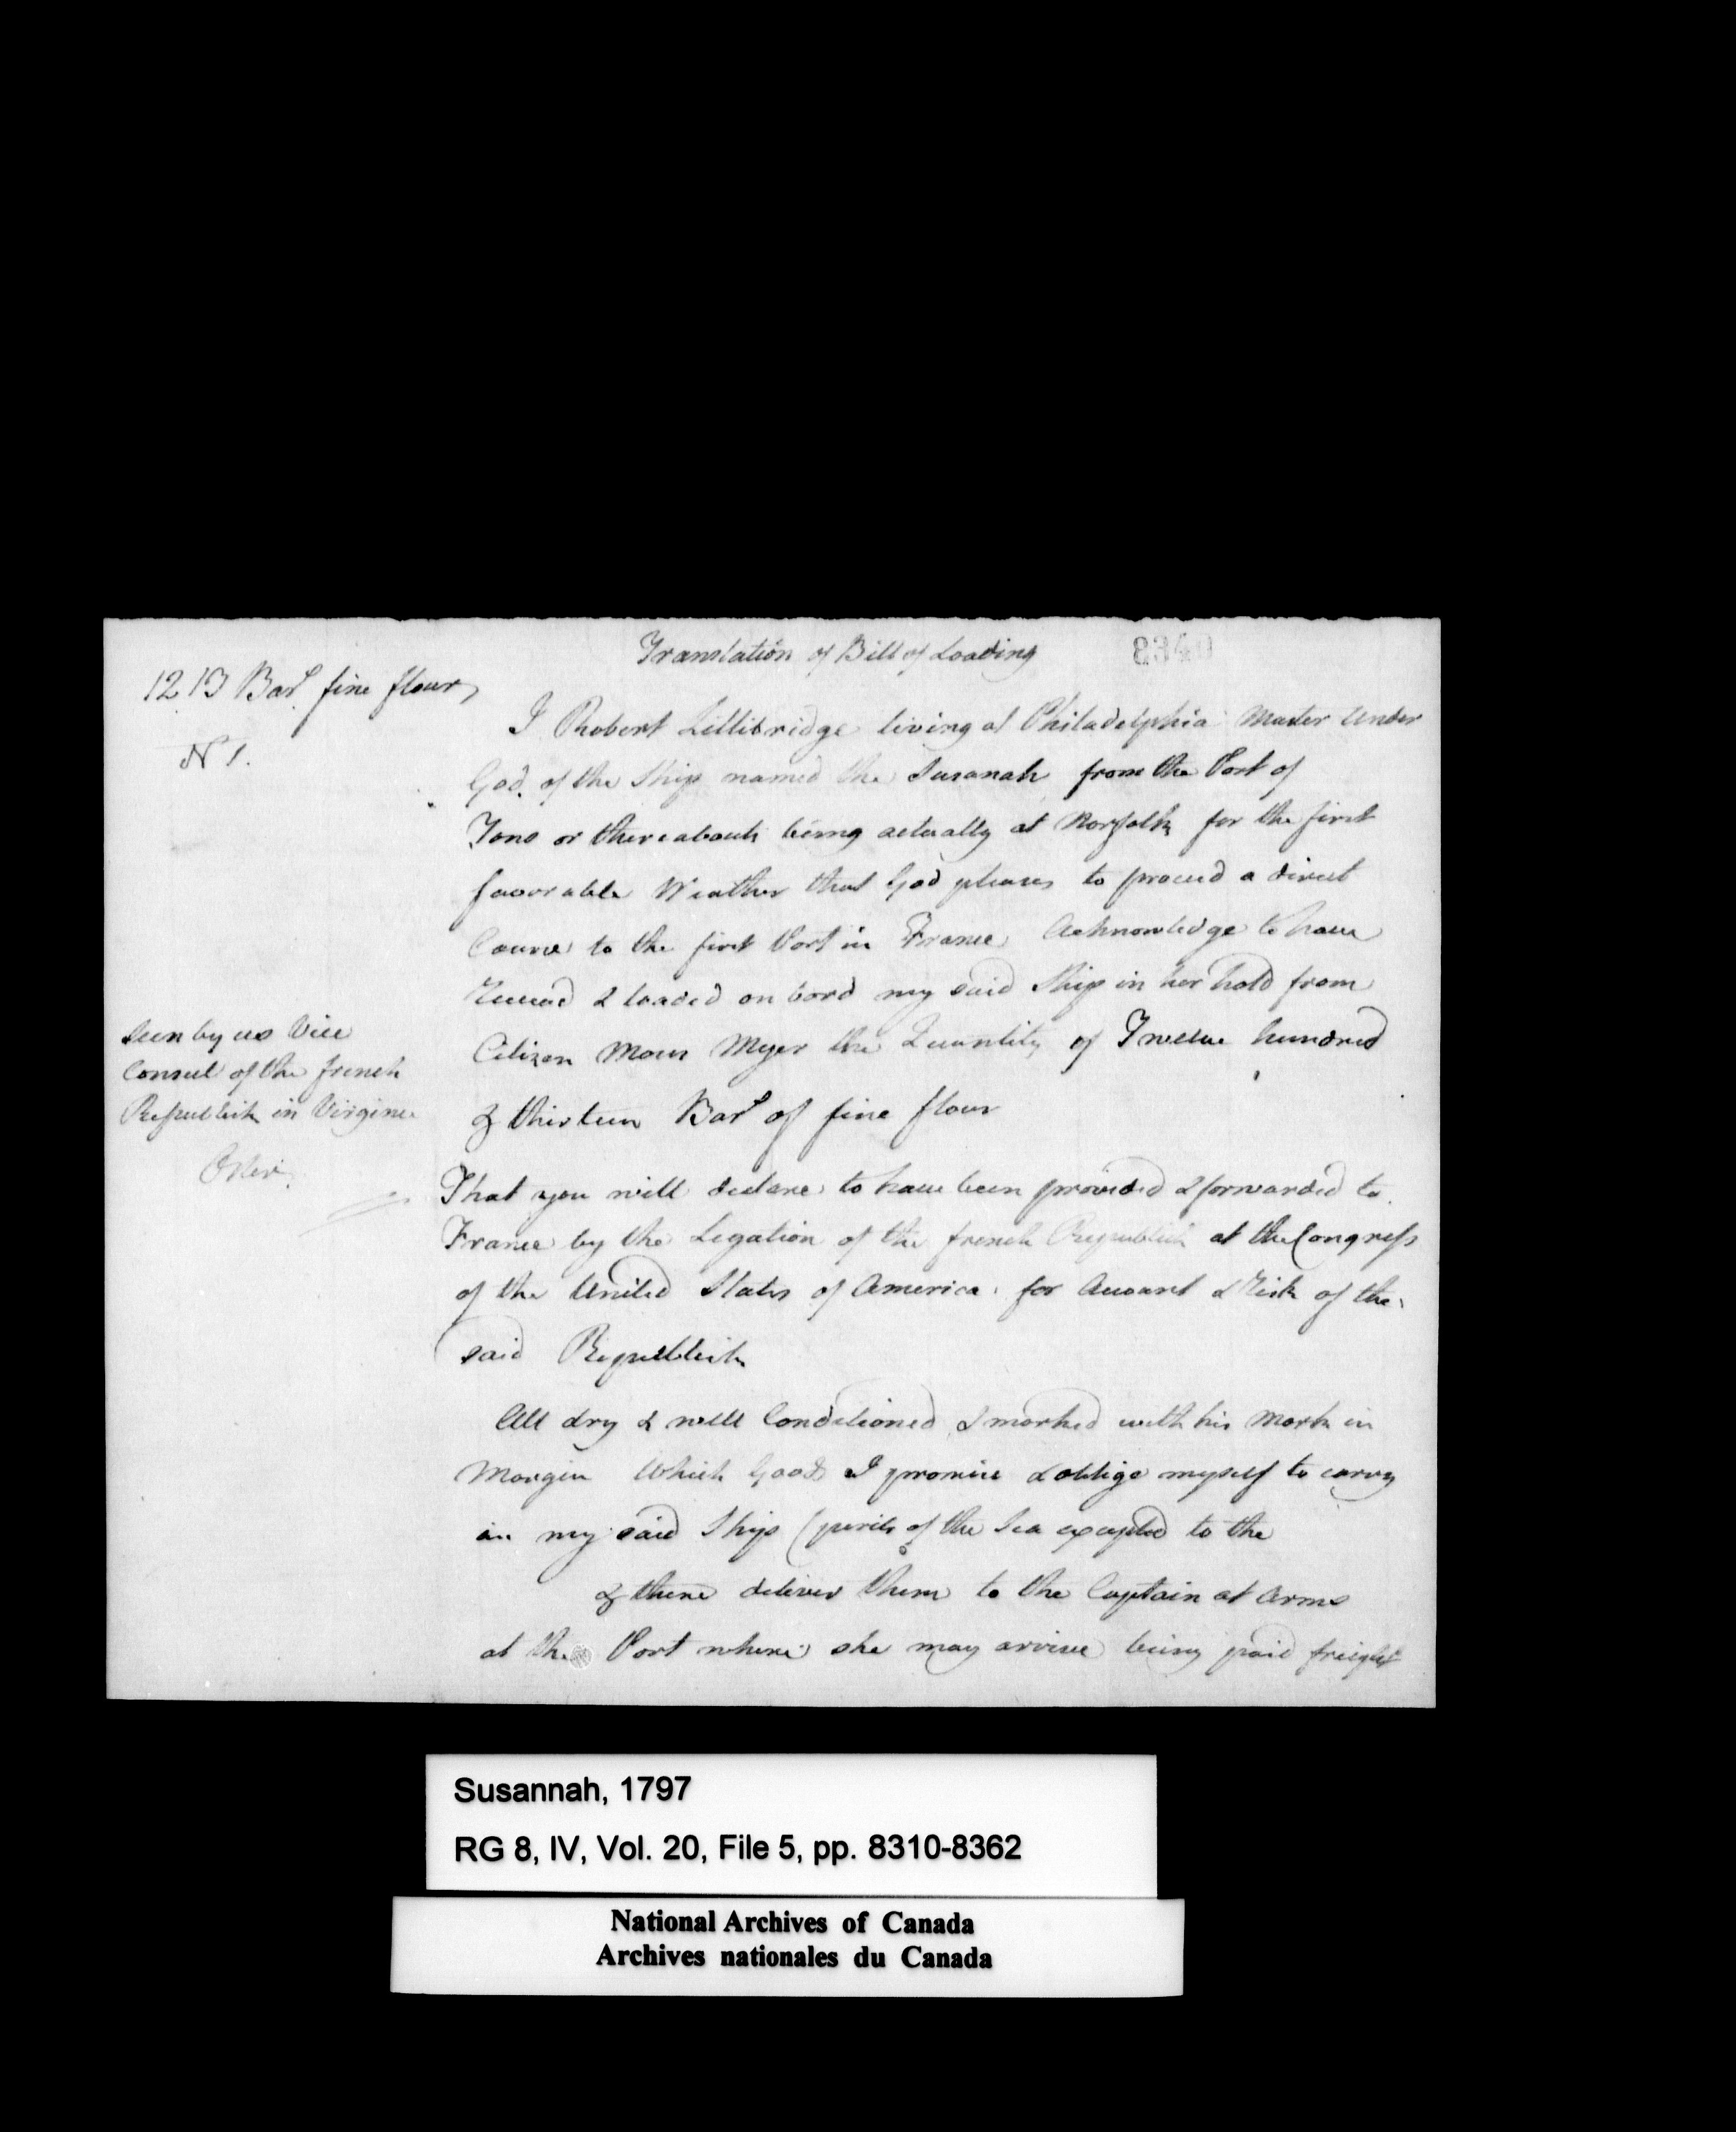 Translation of Bill of Loading
1213 Barl. fine flour
N 1.
I Robert Lillibridge living at Philadelphia Master Under
God, of the Ship named the Susanah from the Port of
Tons or thereabouts being actually at Norfolk for the first
favorable Weather that God pleases to proceed a direct
Course to the first Port in France Acknowledge to have
Received & loaded on bord my said Ship in her hold from
Citizen Moses Myer the Quantity of Twelve hundred
& thirteen Barl of fine flour
Seen by us Vice
Consul of the french
Republick in Virginia
Oster
That you will declare to have been provided & forwarded to
France by the Legation of the french Republick at the Congress
of the United States of America for Account & Risk of the
said Republick
All dry & well Conditioned & marked with his Mark in
Margin Which Goods I promise & oblige myself to carry
in my said Ship (perils of the Sea excepted to the
& there deliver them to the Captain at Arms
at the Port where she may arrive being paid freight
Susannah, 1797
RG 8, IV, Vol. 20, File 5, pp. 8310-8362
National Archives of Canada
Archives nationales du Canada